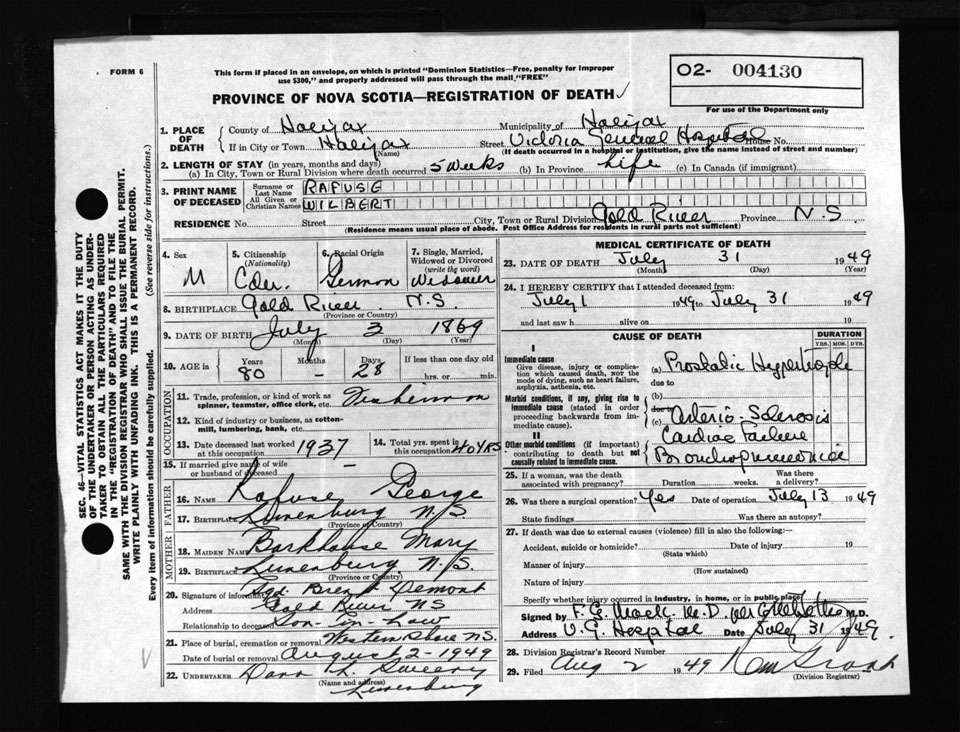 FORM 6
This form if placed in an envelope, on which is printed "Dominion Statistics—Free, penalty for improper
use $300," and properly addressed will pass through the mail "FREE"
O2- 004130
For use of the Department only
PROVINCE OF NOVA SCOTIA—REGISTRATION OF DEATH ✓
SEC. 46—VITAL STATISTICS ACT MAKES IT THE DUTY
OF THE UNDERTAKER OR PERSON ACTING AS UNDER-
TAKER TO OBTAIN ALL THE PARTICULARS REQUIRED
IN THE "REGISTRATION OF DEATH" AND TO FILE THE
SAME WITH THE DIVISION REGISTRAR WHO SHALL ISSUE THE BURIAL PERMIT.
WRITE PLAINLY WITH UNFADING INK. THIS IS A PERMANENT RECORD.
Every item of information should be carefully supplied. (See reverse side for instructions.)
1. PLACE OF DEATH County of Halifax Municipality of Halifax
If in City or Town Halifax Street Victoria General Hospital House No.
(Name) (If death occurred in a hospital or institution, give the name instead of street and number)
2. LENGTH OF STAY (in years, months and days)
(a) In City, Town or Rural Division where death occurred 5 weeks (b) In Province Life (c) In Canada (if immigrant)
3. PRINT NAME OF DECEASED Surname or Last Name RAFUSE
All Given or Christian Names WILBERT
RESIDENCE No. Street City, Town or Rural Division Gold River Province N.S.
(Residence means usual place of abode. Post Office Address for residents in rural parts not sufficient)
4. Sex M
5. Citizenship (Nationality) Cdn.
6. Racial Origin German
7. Single, Married, Widowed or Divorced (write the word) Widower
8. BIRTHPLACE Gold River N.S.
(Province or Country)
9. DATE OF BIRTH July 3 1869
(Month) (Day) (Year)
10. AGE in Years 80 Months – Days 28 If less than one day old
hrs. or min.
OCCUPATION
11. Trade, profession, or kind of work as
spinner, teamster, office clerk, etc. Fisherman
12. Kind of industry or business, as cotton-
mill, lumbering, bank, etc.
13. Date deceased last worked at this occupation 1937
14. Total yrs. spent in this occupation 40 YRS
15. If married give name of wife
or husband of deceased
FATHER
16. NAME Rafuse George
17. BIRTHPLACE Lunenburg N.S.
(Province or Country)
MOTHER
18. MAIDEN NAME Barkhouse Mary
19. BIRTHPLACE Lunenburg N.S.
(Province or Country)
20. Signature of informant Sgd. Demont
Address Gold River NS
Relationship to deceased Son-in-Law
21. Place of burial, cremation or removal Western Shore N.S.
Date of burial or removal August 2-1949
22. UNDERTAKER L. Sweeny
(Name and Address) Lunenburg
MEDICAL CERTIFICATE OF DEATH
23. DATE OF DEATH July 31 1949
(Month) (Day) (Year)
24. I HEREBY CERTIFY that I attended deceased from:
July 1 1949 to July 31 1949
and last saw h alive on 19
CAUSE OF DEATH DURATION
YRS. MOS. DYS.
I
Immediate cause
Give disease, injury or complica-
tion which caused death, NOT the
mode of dying, such as heart failure,
asphyxia, asthenia, etc.
(a) Prostatic Hypertrophy
due to
Morbid conditions, if any, giving rise to
immediate cause (stated in order
proceeding backwards from im-
mediate cause).
(b)
due to
(c) Arterio-Sclerosis
II
Other morbid conditions (if important)
contributing to death but not
causally related to immediate cause.
Cardiac Failure
Bronchopneumoniae
25. If a woman, was the death associated with pregnancy? Duration weeks. Was there a delivery?
26. Was there a surgical operation? Yes Date of operation July 13 1949
State findings Was there an autopsy?
27. If death was due to external causes (violence) fill in also the following:
Accident, suicide or homicide? Date of injury 19
(State which)
Manner of injury
(How sustained)
Nature of injury
Specify whether injury occurred in industry, in home, or in public place
Signed by F. G. Mack M.D. M.D.
Address V.G. Hospital Date July 31 1949.
28. Division Registrar's Record Number
29. Filed Aug 2 1949
(Division Registrar)